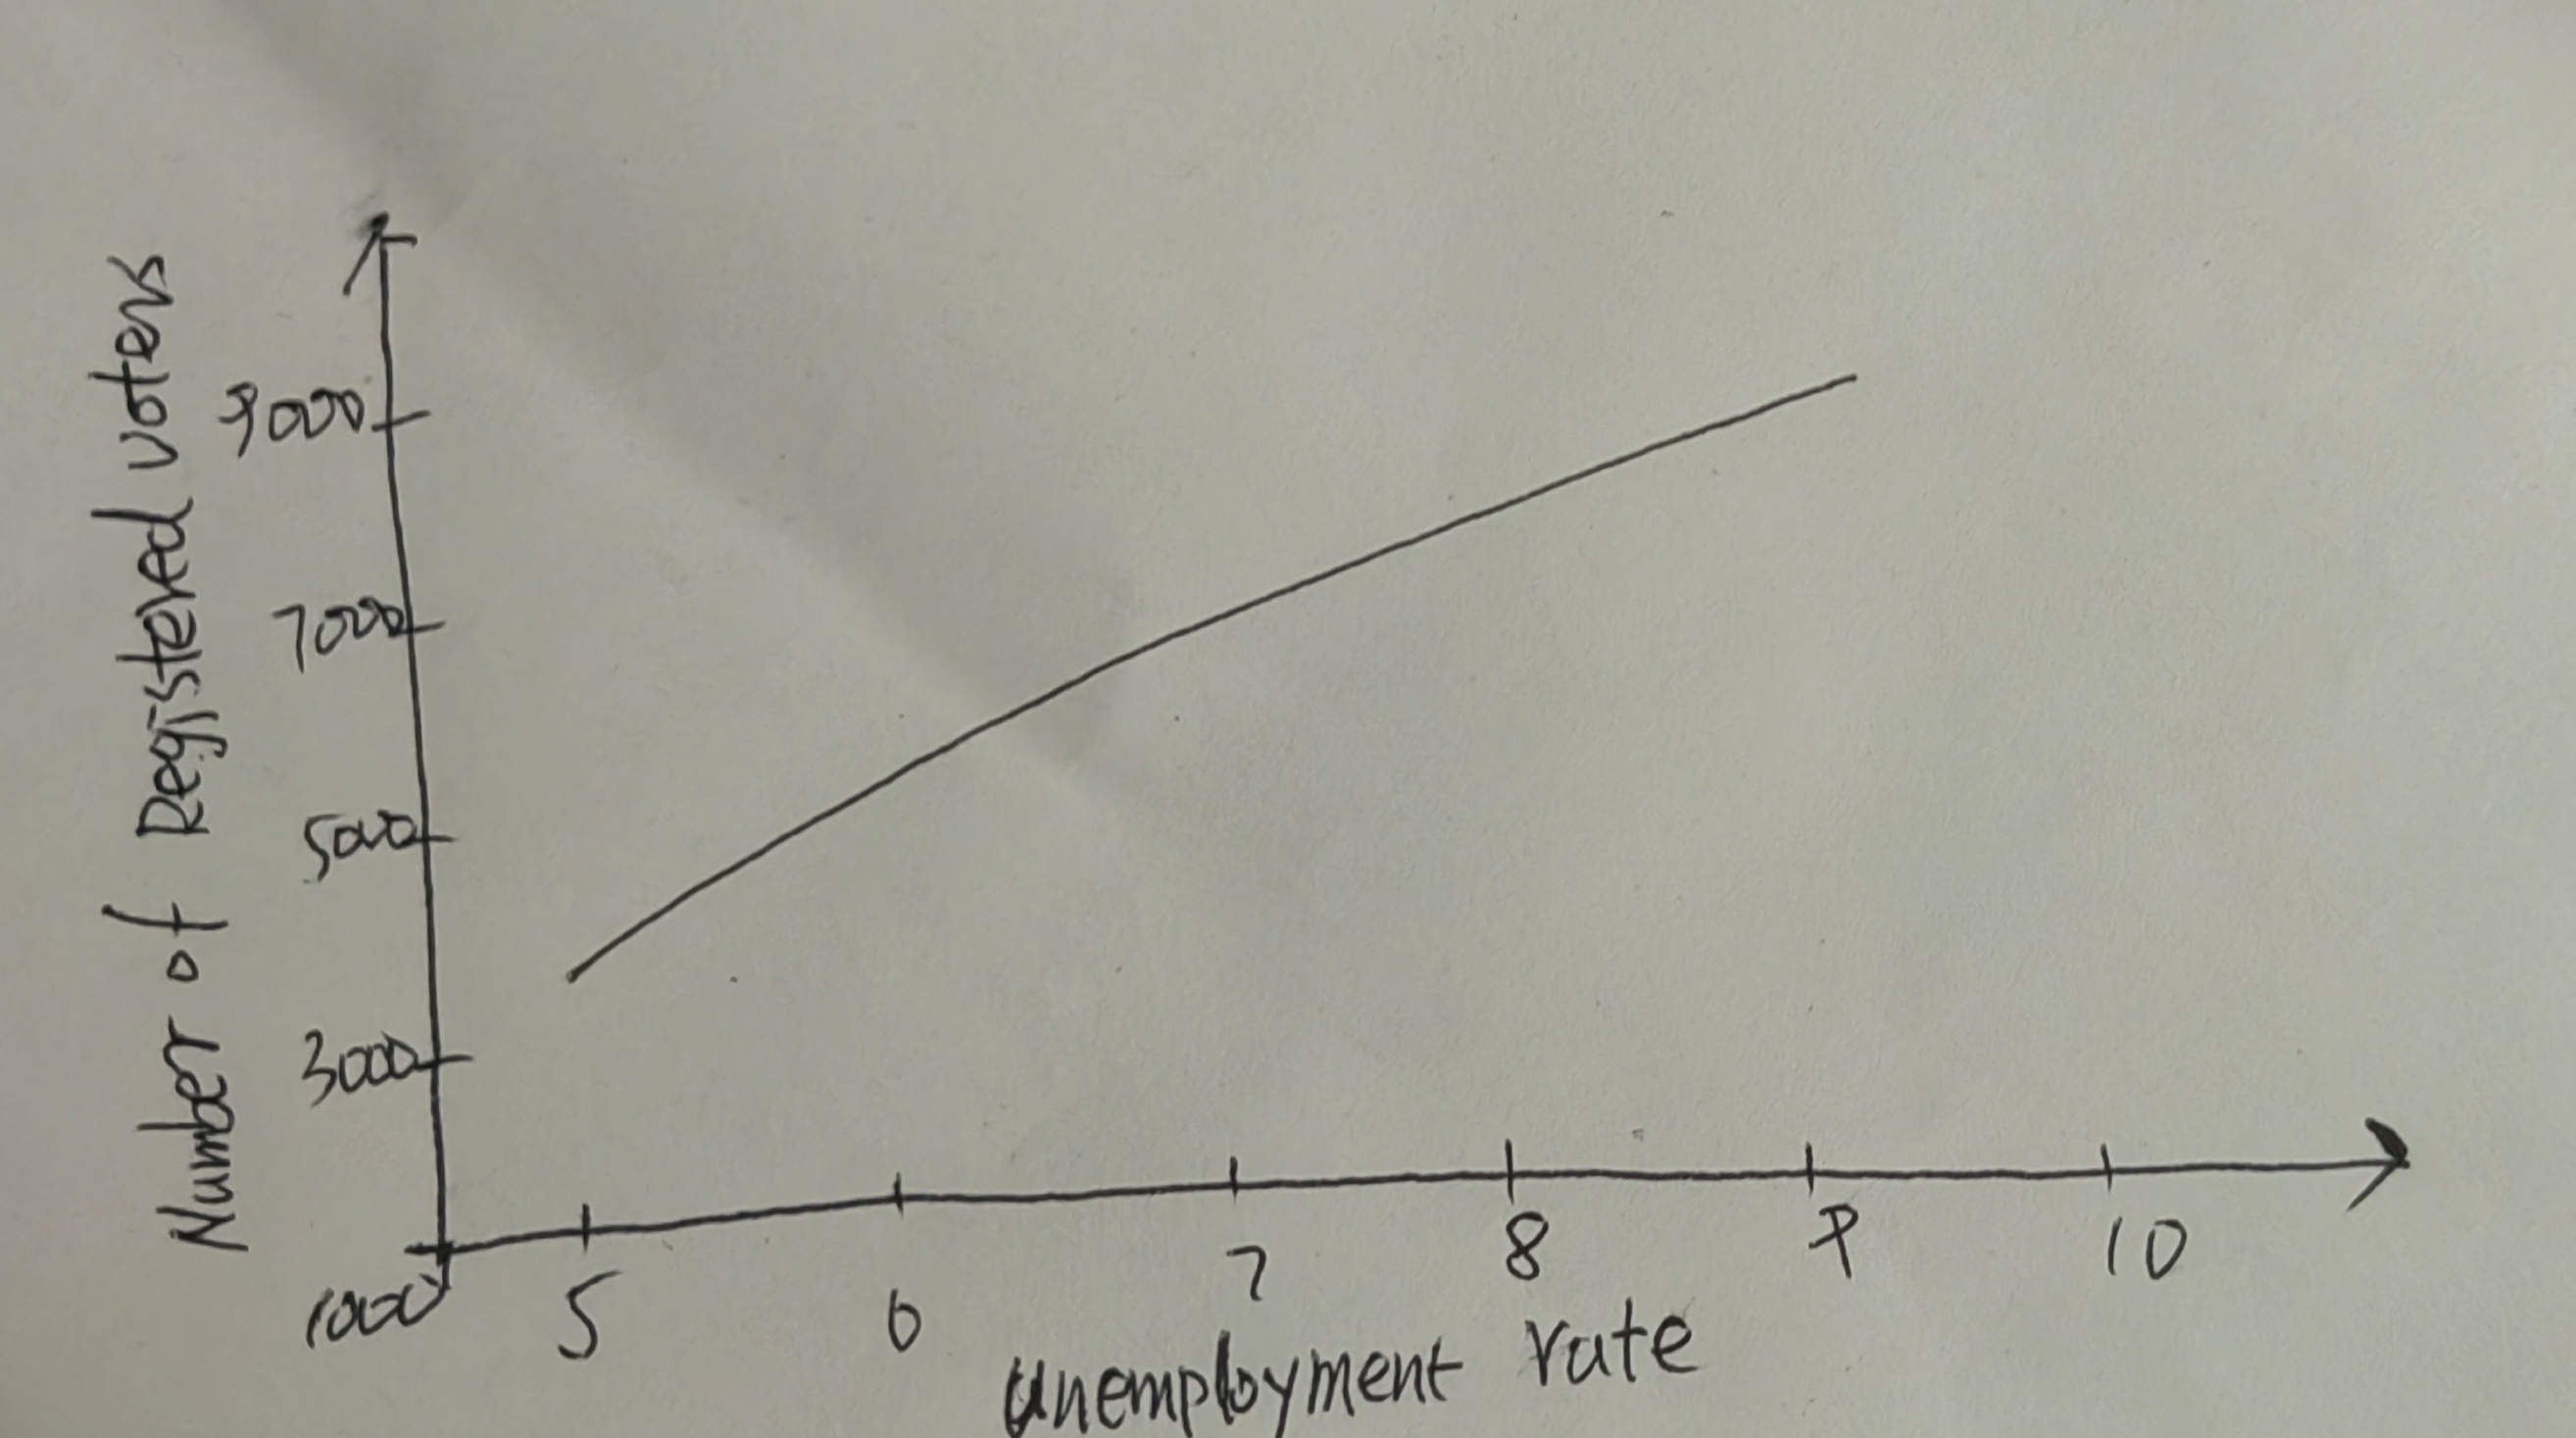 Number of Registered voters
9000
7000
5000
3000
1000
5
6
7
8
9
10
unemployment rate